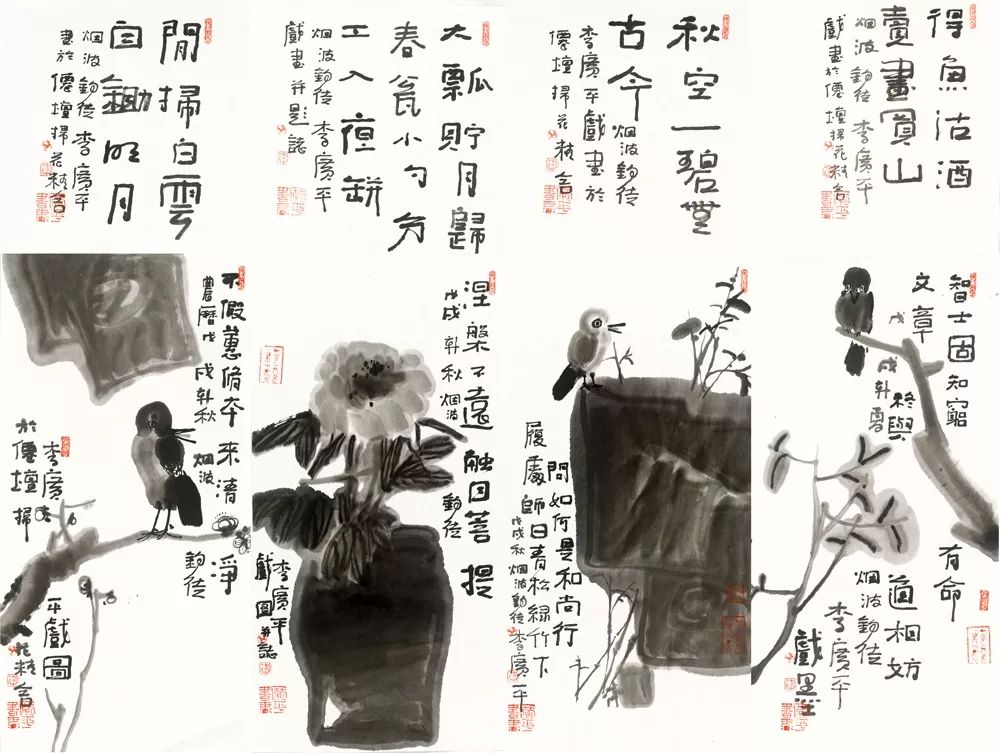 得魚沽酒
賣畫買山
烟波釣徒 李廣平
戲畫於僊壇掃花精舍
秋空一碧無
古今 烟波釣徒
李廣平戲畫於
僊壇掃花精舍
大瓢貯月歸
春瓮小勺分
工入夜缾
烟波釣徒 李廣平
戲畫并題誌
閒掃白雲
自鋤明月
烟波釣徒 李廣平
畫於僊壇掃花精舍
智士固知窮
有命
文章
終與
道相妨
戊戌
烟波釣徒
李廣平
戲墨
問如何是和尚行
履處師曰青松綠竹下
戊戌秋烟波釣徒李廣平
涅槃不遠 觸目菩提
戊戌 秋烟波釣徒
李廣平
戲圖并誌
不假薰脩本來清淨
農曆戊戌 秋 烟波釣徒
李廣
於僊壇掃
平戲圖
花精舍